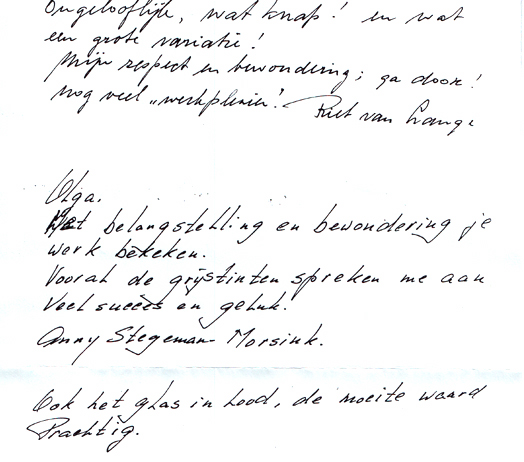 Ongelooflijk, wat knap! en wat
een grote variatie!
Mijn respect en bewondering; ga door!
Nog veel „werkplezier"! Riet van Lange
Olga.
Met belangstelling en bewondering je
werk bekeken.
Vooral de grijstinten spreken me aan
Veel succes en geluk.
Anny Stegeman-Morsink.
Ook het glas in lood, de moeite waard
Prachtig.